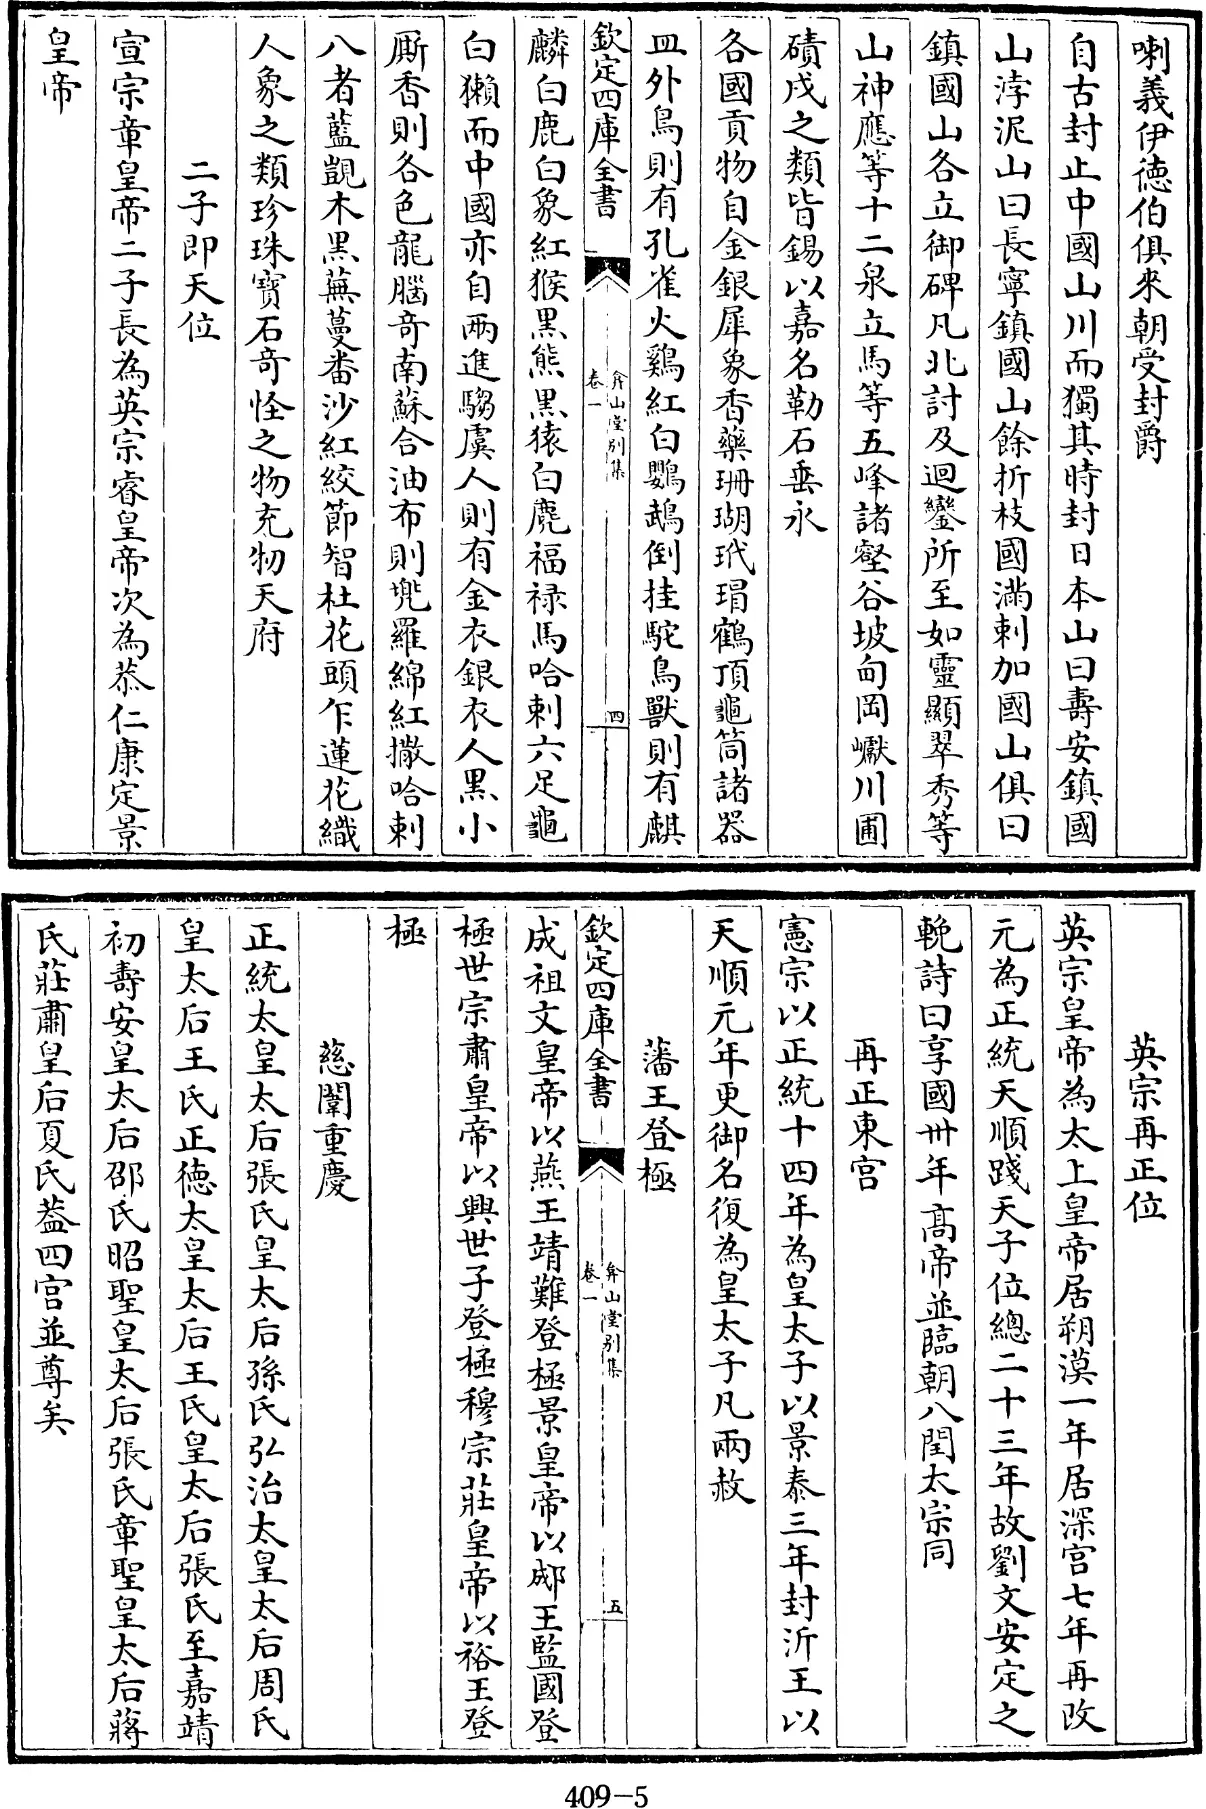 喇義伊德伯俱來朝受封爵
自古封止中國山川而獨其時封日本山曰壽安鎮國
山浡泥山曰長寧鎮國山餘折枝國滿剌加國山俱曰
鎮國山各立御碑凡北討及迴鑾所至如靈顯翠秀等
山神應等十二泉立馬等五峰諸壑谷坡甸岡巘川圃
磧戍之類皆錫以嘉名勒石垂永
各國貢物自金銀犀象香藥珊瑚玳瑁鶴頂龜筒諸器
皿外鳥則有孔雀火鷄紅白鸚鵡倒挂駝鳥獸則有麒
欽定四庫全書
弇山堂別集
卷一
四
麟白鹿白象紅猴黑熊黑猿白麂福祿馬哈剌六足龜
白獺而中國亦自兩進騶虞人則有金衣銀衣人黑小
厮香則各色龍腦奇南蘇合油布則兜羅綿紅撒哈剌
八者藍覬木黑蕪蔓番沙紅絞節智杜花頭乍蓮花織
人象之類珍珠寶石奇怪之物充牣天府
二子即天位
宣宗章皇帝二子長為英宗睿皇帝次為恭仁康定景
皇帝
英宗再正位
英宗皇帝為太上皇帝居朔漠一年居深宫七年再改
元為正統天順踐天子位總二十三年故劉文安定之
輓詩曰享國卅年高帝並臨朝八閏太宗同
再正東宫
憲宗以正統十四年為皇太子以景泰三年封沂王以
天順元年更御名復為皇太子凡兩赦
藩王登極
欽定四庫全書
弇山堂別集
卷一
五
成祖文皇帝以燕王靖難登極景皇帝以郕王監國登
極世宗肅皇帝以興世子登極穆宗莊皇帝以裕王登
極
慈闈重慶
正統太皇太后張氏皇太后孫氏弘治太皇太后周氏
皇太后王氏正德太皇太后王氏皇太后張氏至嘉靖
初壽安皇太后邵氏昭聖皇太后張氏章聖皇太后蔣
氏莊肅皇后夏氏蓋四宫並尊矣
409-5